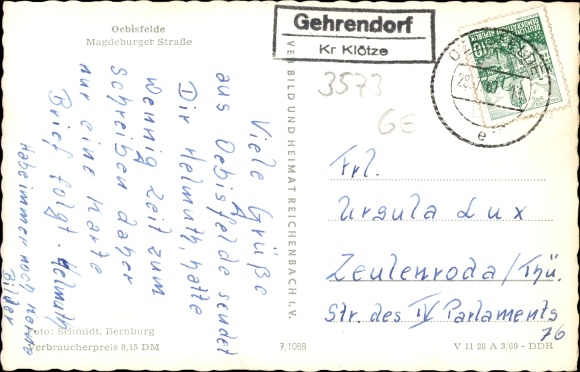 Oebisfelde
Magdeburger Straße
Gehrendorf
Kr Klötze
3573
GE
Viele Grüße
aus Oebisfelde sendet
Dir Helmuth, hatte
wennig Zeit zum
schreiben daher
nur eine Karte
Brief folgt. Helmuth
Habe immer noch keine
Bilder
VEB BILD UND HEIMAT REICHENBACH i. V.
Frl.
Ursula Lux
Zeulenroda/Thü.
Str. des IV Parlaments
76
Foto: Schmidt, Bernburg
Verbraucherpreis 0,15 DM
7,1088
V 11 28 A 3/60 - DDR
e